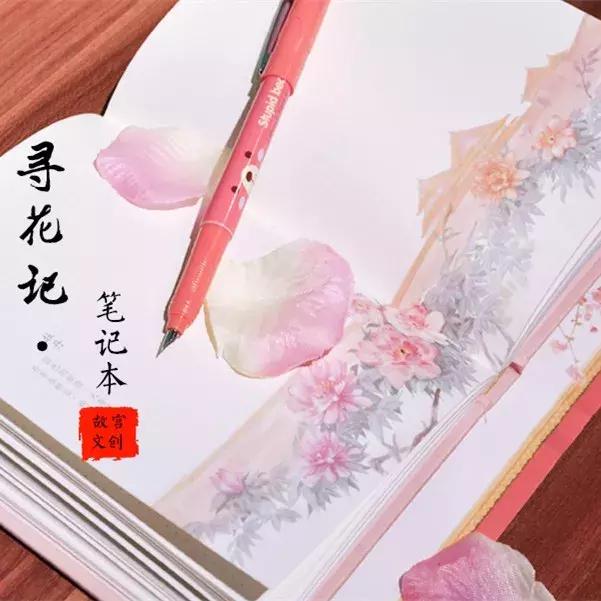 寻花记
·
笔记本
故宫
文创
Stupid bea